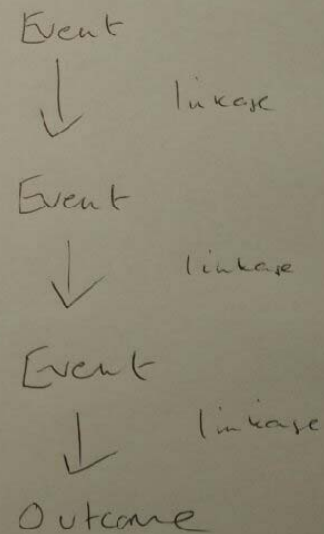 Event
linkage
Event
linkage
Event
linkage
Outcome